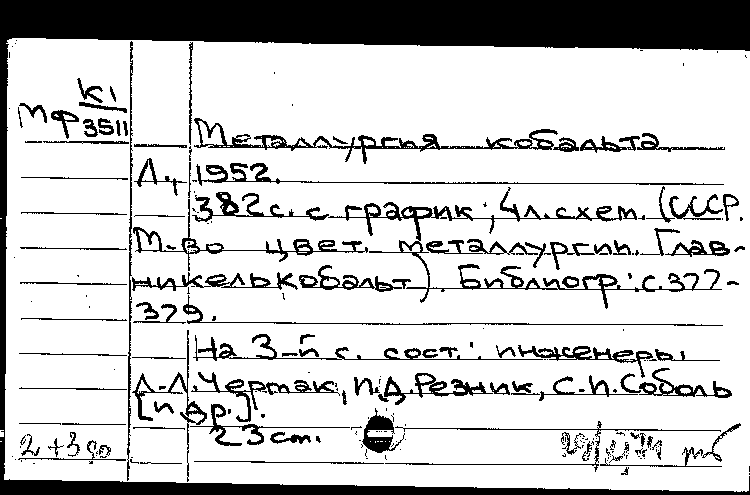 К1
МФ 3511
Металлургия кобальта.
Л., 1952.
382с. с график.; 4л.схем. (СССР.
М-во цвет. металлургии. Глав-
никелькобальт). Библиогр.: с.377-
379.
На 3-й с. сост.: инженеры
Л.Л.Чертак, П.Д.Резник, С.П.Соболь
[и др.].
23 cm.
2+3